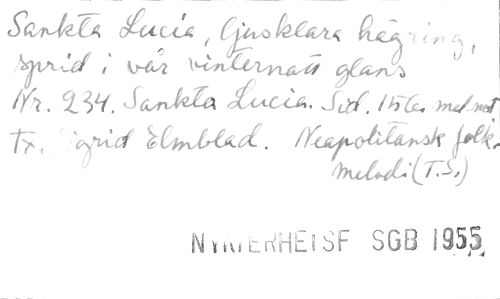 Sankta Lucia, ljusklara hägring,
sprid i vår vinternatt glans
Nr. 234. Sankta Lucia. Sid. med not
Tx. Sigrid Elmblad. Neapolitansk folk-
melodi (T.S.)
NYKTERHETSF SGB 1955